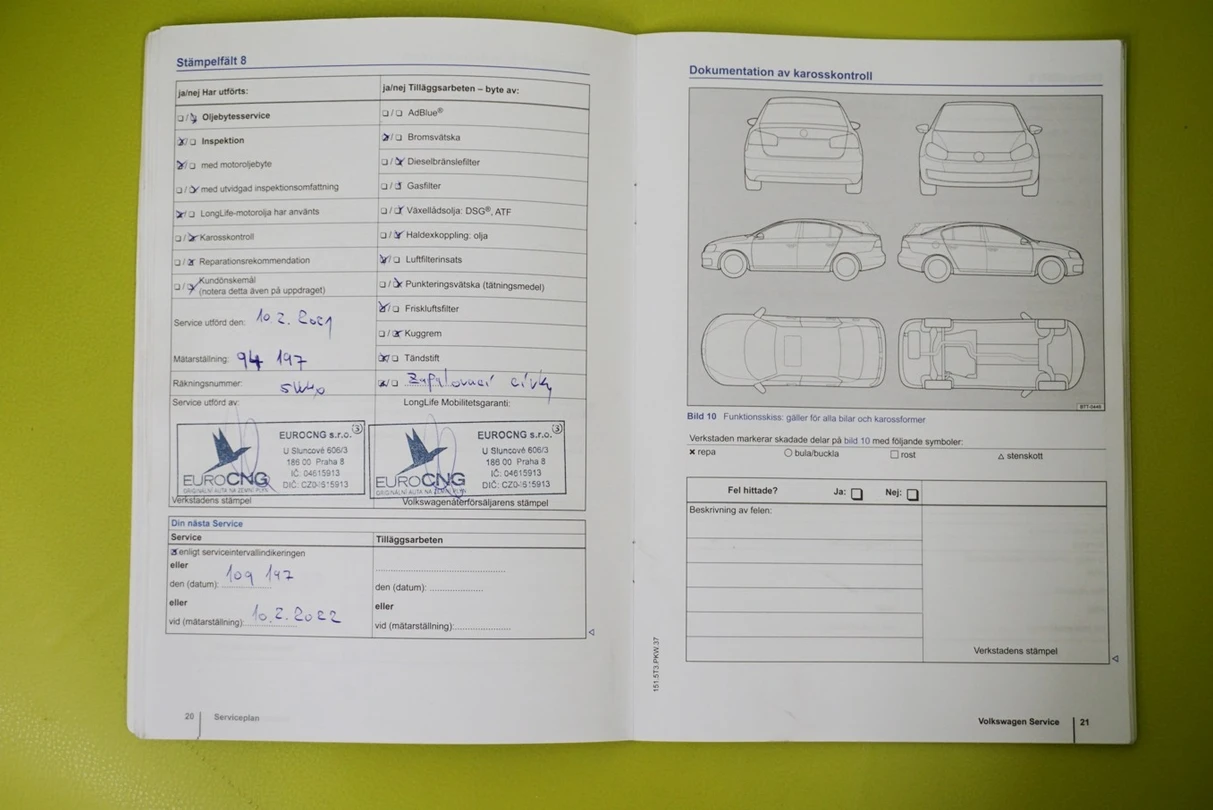 Stämpelfält 8
ja/nej Har utförts:
Oljebytesservice
Inspektion
med motoroljebyte
med utvidgad inspektionsomfattning
LongLife-motorolja har använts
Karosskontroll
Reparationsrekommendation
Kundönskemål
(notera detta även på uppdraget)
Service utförd den: 10.2.2021
Mätarställning: 94 197
Räkningsnummer:
Service utförd av:
EUROCNG s.r.o. 3
U Sluncové 606/3
186 00 Praha 8
IČ: 04615913
DIČ: CZ04615913
EUROCNG
ORIGINÁLNÍ AUTA NA ZEMNÍ PLYN
Verkstadens stämpel
ja/nej Tilläggsarbeten – byte av:
AdBlue®
Bromsvätska
Dieselbränslefilter
Gasfilter
Växellådsolja: DSG®, ATF
Haldexkoppling: olja
Luftfilterinsats
Punkteringsvätska (tätningsmedel)
Friskluftsfilter
Kuggrem
Tändstift
Zapalovací cívky
LongLife Mobilitetsgaranti:
EUROCNG s.r.o. 3
U Sluncové 606/3
186 00 Praha 8
IČ: 04615913
DIČ: CZ04615913
EUROCNG
ORIGINÁLNÍ AUTA NA ZEMNÍ PLYN
Volkswagenåterförsäljarens stämpel
Din nästa Service
Service
enligt serviceintervallindikeringen
eller
den (datum): 109 197
eller
vid (mätarställning): 10.2.2022
Tilläggsarbeten
den (datum):
eller
vid (mätarställning):
20 Serviceplan
Dokumentation av karosskontroll
BTT-0446
Bild 10 Funktionsskiss: gäller för alla bilar och karossformer
Verkstaden markerar skadade delar på bild 10 med följande symboler:
repa bula/buckla rost stenskott
Fel hittade? Ja: Nej:
Beskrivning av felen:
Verkstadens stämpel
151.5T3.PKW.37
Volkswagen Service 21